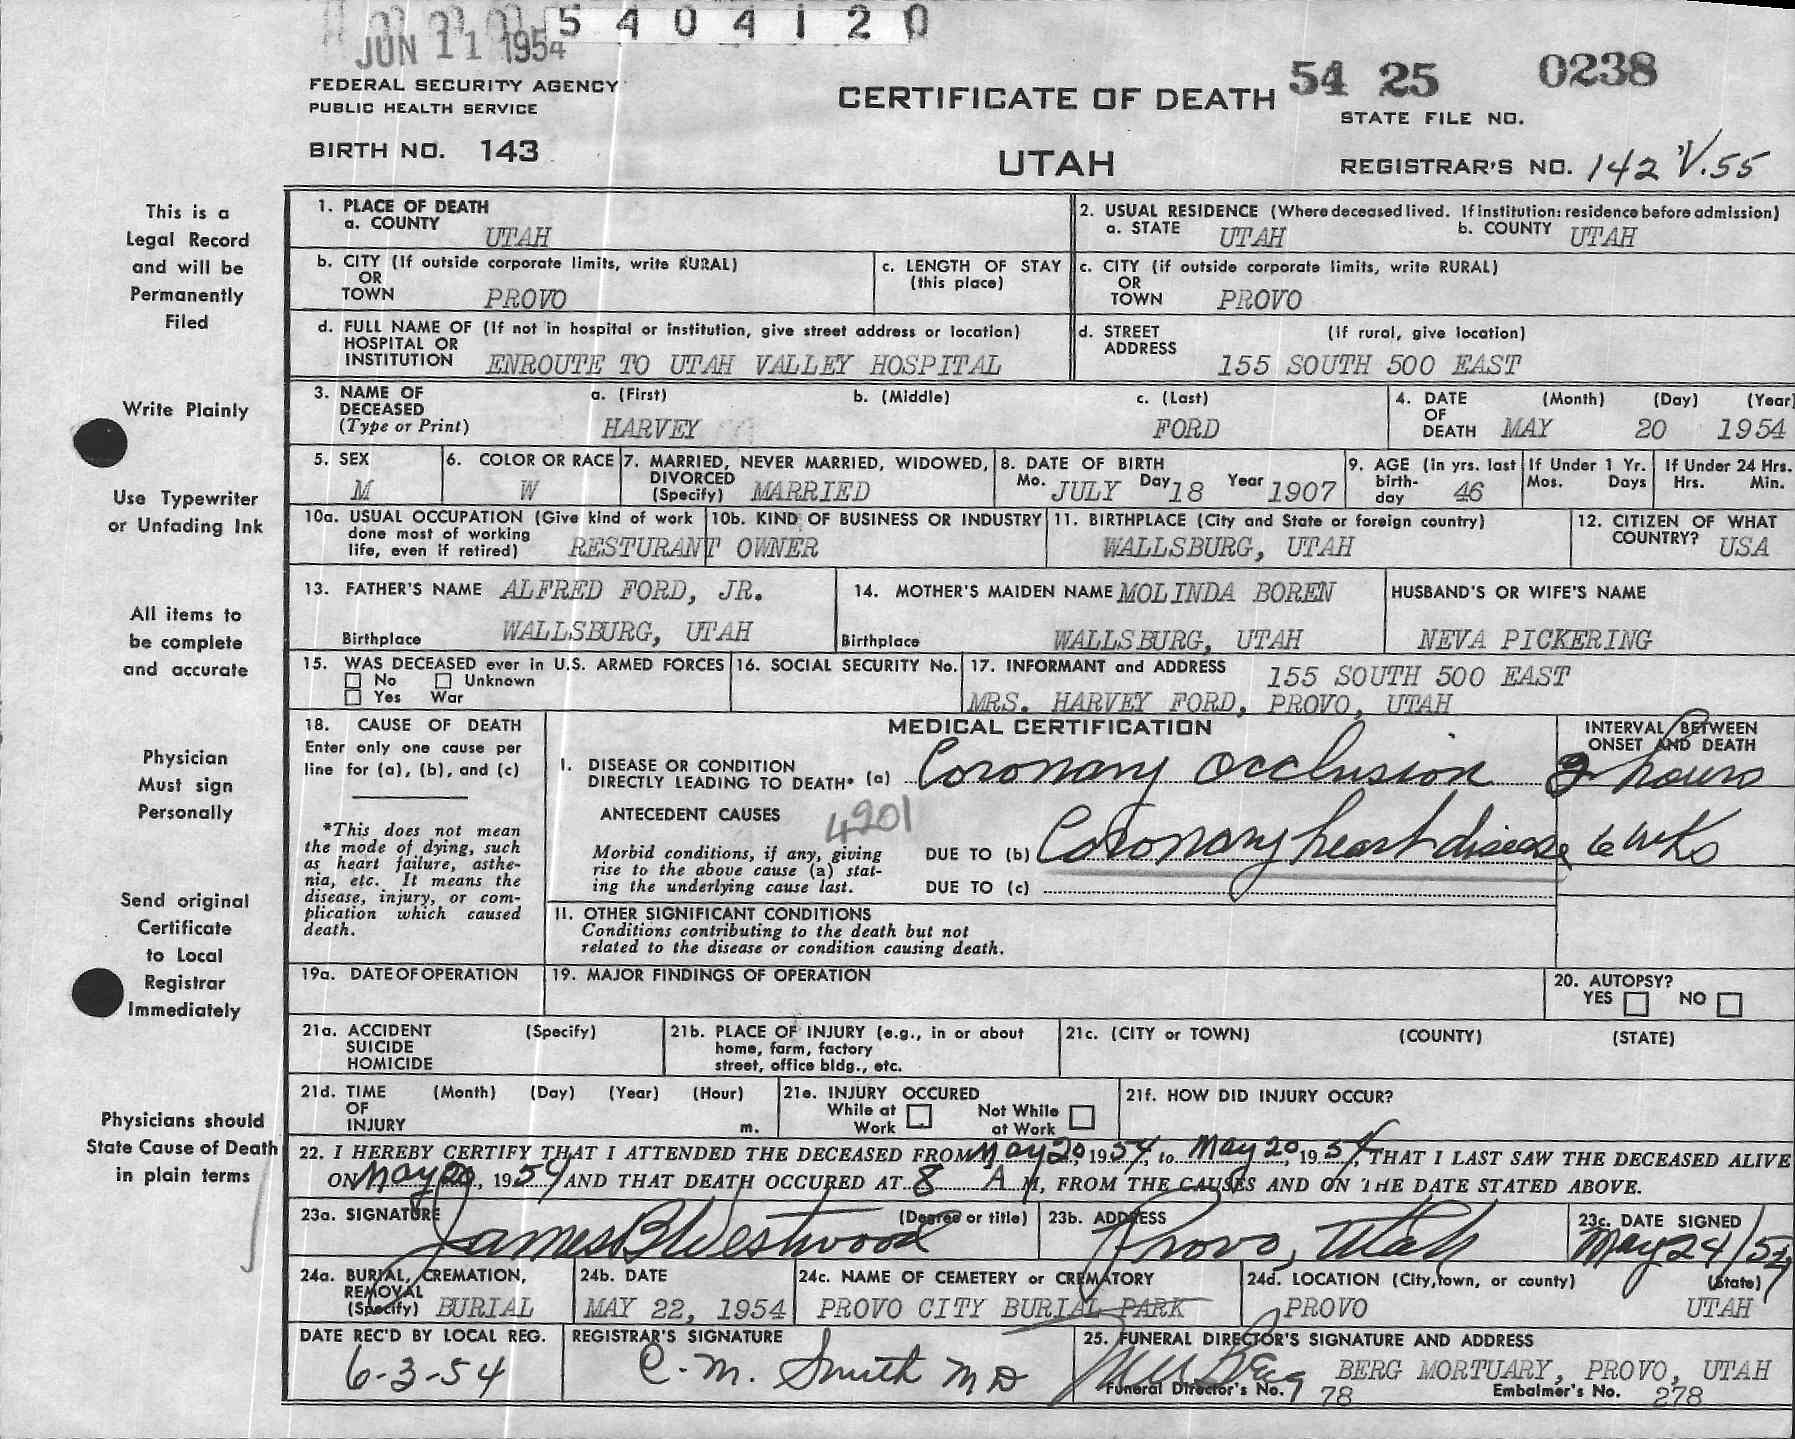 5404120
JUN 11 1954
FEDERAL SECURITY AGENCY
PUBLIC HEALTH SERVICE
CERTIFICATE OF DEATH
54 25 0238
STATE FILE NO.
BIRTH NO. 143
UTAH
REGISTRAR'S NO. 142 V.55
This is a
Legal Record
and will be
Permanently
Filed
Write Plainly
Use Typewriter
or Unfading Ink
All items to
be complete
and accurate
Physician
Must sign
Personally
Send original
Certificate
to Local
Registrar
Immediately
Physicians should
State Cause of Death
in plain terms
1. PLACE OF DEATH
a. COUNTY UTAH
2. USUAL RESIDENCE (Where deceased lived. If institution: residence before admission)
a. STATE UTAH b. COUNTY UTAH
b. CITY (If outside corporate limits, write RURAL)
OR
TOWN PROVO
c. LENGTH OF STAY
(this place)
c. CITY (if outside corporate limits, write RURAL)
OR
TOWN PROVO
d. FULL NAME OF (If not in hospital or institution, give street address or location)
HOSPITAL OR
INSTITUTION ENROUTE TO UTAH VALLEY HOSPITAL
d. STREET (If rural, give location)
ADDRESS
155 SOUTH 500 EAST
3. NAME OF DECEASED (Type or Print)
a. (First) b. (Middle) c. (Last)
HARVEY FORD
4. DATE OF DEATH (Month) (Day) (Year)
MAY 20 1954
5. SEX
M
6. COLOR OR RACE
W
7. MARRIED, NEVER MARRIED, WIDOWED,
DIVORCED
(Specify) MARRIED
8. DATE OF BIRTH
Mo. JULY Day 18 Year 1907
9. AGE (In yrs. last
birth-
day 46
If Under 1 Yr.
Mos. Days
If Under 24 Hrs.
Hrs. Min.
10a. USUAL OCCUPATION (Give kind of work
done most of working
life, even if retired) RESTURANT OWNER
10b. KIND OF BUSINESS OR INDUSTRY
11. BIRTHPLACE (City and State or foreign country)
WALLSBURG, UTAH
12. CITIZEN OF WHAT
COUNTRY? USA
13. FATHER'S NAME ALFRED FORD, JR.
Birthplace WALLSBURG, UTAH
14. MOTHER'S MAIDEN NAME MOLINDA BOREN
Birthplace WALLSBURG, UTAH
HUSBAND'S OR WIFE'S NAME
NEVA PICKERING
15. WAS DECEASED ever in U.S. ARMED FORCES
No Unknown
Yes War
16. SOCIAL SECURITY No.
17. INFORMANT and ADDRESS 155 SOUTH 500 EAST
MRS. HARVEY FORD, PROVO, UTAH
18. CAUSE OF DEATH
Enter only one cause per
line for (a), (b), and (c)
*This does not mean
the mode of dying, such
as heart failure, asthe-
nia, etc. It means the
disease, injury, or com-
plication which caused
death.
MEDICAL CERTIFICATION
INTERVAL BETWEEN
ONSET AND DEATH
I. DISEASE OR CONDITION
DIRECTLY LEADING TO DEATH* (a) Coronary occlusion 2 hours
ANTECEDENT CAUSES
4201
Morbid conditions, if any, giving
rise to the above cause (a) stat-
ing the underlying cause last.
DUE TO (b) Coronary heart disease 6 wks
DUE TO (c)
II. OTHER SIGNIFICANT CONDITIONS
Conditions contributing to the death but not
related to the disease or condition causing death.
19a. DATE OF OPERATION
19. MAJOR FINDINGS OF OPERATION
20. AUTOPSY?
YES NO
21a. ACCIDENT (Specify)
SUICIDE
HOMICIDE
21b. PLACE OF INJURY (e.g., in or about
home, farm, factory
street, office bldg., etc.
21c. (CITY or TOWN) (COUNTY) (STATE)
21d. TIME (Month) (Day) (Year) (Hour)
OF
INJURY m.
21e. INJURY OCCURED
While at Work
Not While at Work
21f. HOW DID INJURY OCCUR?
22. I HEREBY CERTIFY THAT I ATTENDED THE DECEASED FROM May 20, 1954, to May 20, 1954, THAT I LAST SAW THE DECEASED ALIVE
ON May 20, 1954 AND THAT DEATH OCCURED AT 8 A M, FROM THE CAUSES AND ON THE DATE STATED ABOVE.
23a. SIGNATURE (Degree or title)
James B Westwood
23b. ADDRESS
Provo, Utah
23c. DATE SIGNED
May 24/54
24a. BURIAL, CREMATION,
REMOVAL
(Specify) BURIAL
24b. DATE
MAY 22, 1954
24c. NAME OF CEMETERY or CREMATORY
PROVO CITY BURIAL PARK
24d. LOCATION (City, town, or county) (State)
PROVO UTAH
DATE REC'D BY LOCAL REG.
6-3-54
REGISTRAR'S SIGNATURE
C. M. Smith MD
25. FUNERAL DIRECTOR'S SIGNATURE AND ADDRESS
BERG MORTUARY, PROVO, UTAH
Funeral Director's No. 78 Embalmer's No. 278